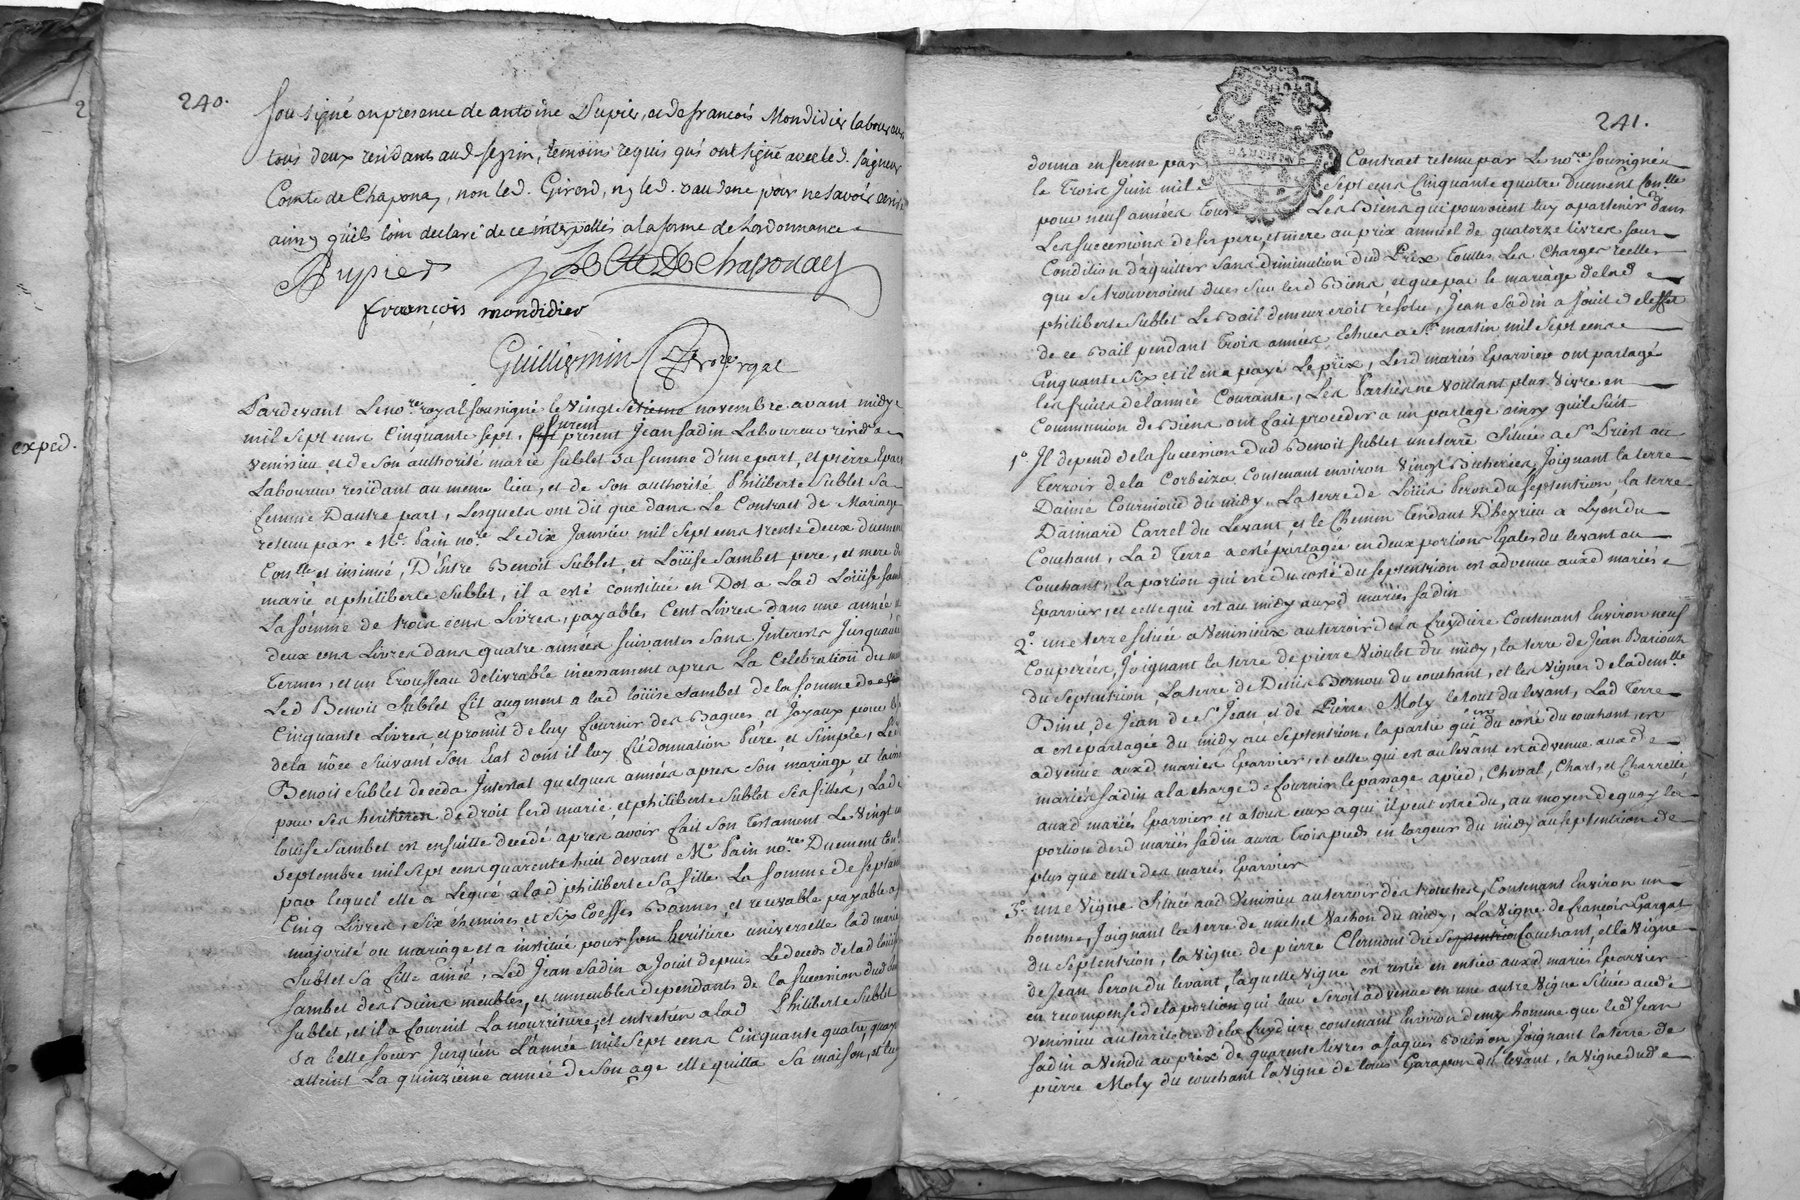 240.
sousigné en presence de antoine Dupier, et de françois Mondidier laboureurs
tous deux residants aud seyzin, temoins requis qui ont signé avec led. seigneur
Comte de Chaponay, non led. Girerd, ny led. vaudone pour ne savoir écrire
ainsy quils l'ont declaré de ce interpellés a la forme de Lordonnance
Dupier
Le Cte De Chaponay
françois mondidier
Guilliermin
Nore rgal
exped.
Pardevant Le nore royal sousigné le vingt setieme novembre avant midy
mil sept cens Cinquante sept, furent present Jean sadin Laboureur resid a
venissieu, et de son authorité marie sublet sa femme d'une part, et pierre Eparvier
Laboureur residant au meme lieu, et de son authorité Philiberte Sublet sa
femme D'autre part, Lesquels ont dit que dans Le Contract de Mariage
retenu par Me. Pain nore Le dix Janvier mil sept cens trente deux duement
Conlle et insinué, D'entre Benoit Sublet, et Loüise Sambet pere, et mere de
marie et philiberte Sublet, il a esté constitué en Dot a Lad Loüise sambet
La somme de trois cens Livres, payables Cent Livres dans une année et
deux cens Livres dans quatre années suivantes sans Interets Jusqu'aud
Termes, et un Trousseau delivrable incessament apres La Celebration du mariage
Led Benoit Sublet fit augment a lad loüise sambet de la somme de
Cinquante Livres, et promit de luy fournir des Bagues, et Joyaux pour le
dela nôce suivant son Etat dont il luy fit donnation Pure, et Simple, Led
Benoit Sublet deceda Intestat quelques années apres son mariage, et laissa
pour ses heritieres de droit lesd marie, et philiberte Sublet ses filles, Lad
louise Sambet est ensuitte decedé apres avoir fait son Testament Le vingt un
septembre mil sept cens quarente huit devant Me Pain nore Duement Conlle
par lequel elle a Legué a lad philiberte sa fille La somme de septante
Cinq Livres, Six chemises, et Six Coeffes Bonnes, et recevable payable a sa
majorité ou mariage et a institué pour son heritiere universelle lad marie
Sublet sa fille ainée, Led Jean Sadin a Jouit depuis Le deceds de lad loüise
Sambet des Biens meubles, et immeubles dependants de la succession dud Benoit
Sublet, et il a fournit La nourriture, et entretien a lad Philiberte Sublet
sa belle soeur Jusqu'en L'année mil sept cens Cinquante quatre, quayant
atteint La quinzieme année de son age elle quitta sa maison, et luy
241.
donna en ferme par Contract retenu par Le nore sousigné
le Trois Juin mil Sept cens Cinquante quatre duement Conlle
pour neuf années tous Les Biens qui pouvoient luy apartenir dans
Les successions de ses pere, et mere au prix annuel de quatorze livres sous
Condition d'aquitter sans diminution dud Prix toutes Les Charges reelles
qui se trouveroient dues sur lesd Biens et que par le mariage de lad
philiberte Sublet Le Bail demeureroit résolu, Jean Sadin a Jouit de leffet
de ce Bail pendant Trois années Echues a St martin mil Sept cens
Cinquante Six et il en a payé Le prix, Lesd mariés Eparvier ont partagé
les fruits de l'année Courante, Les Parties ne voulant plus vivre en
Communion de Biens, ont fait proceder a un partage ainsy qu'il suit
1º. Il depend de la succession dud Benoit Sublet une terre Située a St Priest au
Terroir de la Corbeiza, Contenant environ Vingt Bicherées, Joignant la terre
Daimé Cournioud du midy, La terre de Loüis Peron du Septentrion, la terre
Daimard Carrel du Levant, et le Chemin Tendant D'heyrieu a Lyon du
Couchant, Lad Terre a esté partagée en deux portions Egales du levant au
Couchant, la portion qui est du costé du Septentrion est advenue auxd mariés
Eparvier, et celle qui est au midy auxd mariés Sadin
2º. une terre située a Venissieux au terroir de la freydiere Contenant Environ neuf
Couperées, Joignant la terre de pierre Vioulet du midy, la terre de Jean Bariouz
du Septentrion, La terre de Denis Bornou du couchant, et les vignes de la demlle
Binet, de Jean, de St Jean, et de Pierre Moly le tout du levant, Lad Terre
a esté partagée du midy au septentrion, la partie qui est du costé du couchant, est
advenue auxd mariés Eparvier, et celle qui est au levant est advenue auxd
mariés Sadin a la charge de fournir le passage a pied, Cheval, Chart, et Charrette,
auxd mariés Eparvier et a tous ceux a qui il peut estre du, au moyen de quoy la
portion desd mariés Sadin aura Trois pieds en largeur du midy au septentrion de
plus que celle des mariés Eparvier
3º. une Vigne Située aud Venissieu au terroir des trouches, Contenant Environ un
homme, Joignant la terre de michel Vachon du midy, La vigne de francois Gargat
du Septentrion, la vigne de pierre Clermont du Septentrion Couchant, et la vigne
de Jean Peron du levant, laquelle vigne est restée en entier auxd mariés Eparvier
en recompense de la portion qui leur seroit advenue en une autre vigne Située aud
Venissieu au territoire de la freydiere contenant Environ demy homme que led Jean
Sadin a vendu au prix de quarente livres a Jaques Buisson Joignant la terre de
pierre Moly du couchant la vigne de louis Garapon du levant, la vigne dud